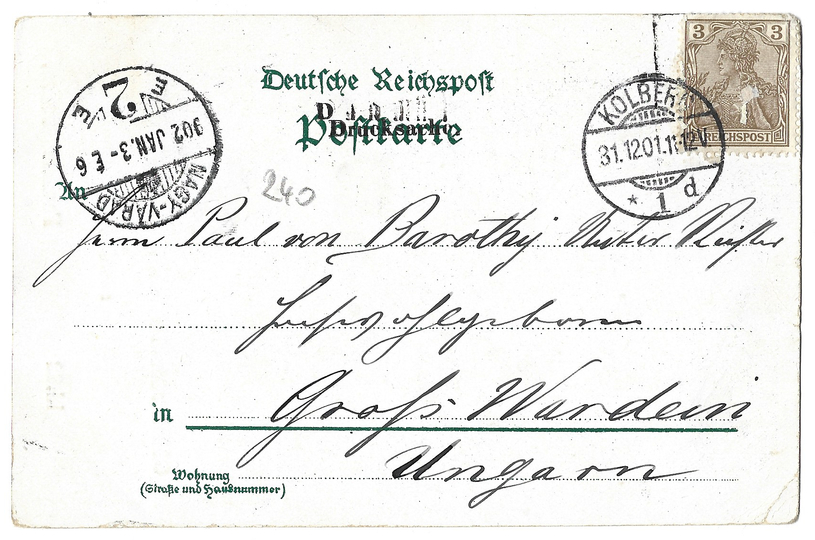 Deutsche Reichspost
Postkarte
Drucksache
3
REICHSPOST
KOLBERG
31.12.01.11-12V.
* 1 d
NAGY-VÁRAD
902 JAN. 3 - E 6
2
240
An
Herrn Paul von Barothy
Hochwohlgeboren
in Groß Wardein
Ungarn
Wohnung
(Straße und Hausnummer)